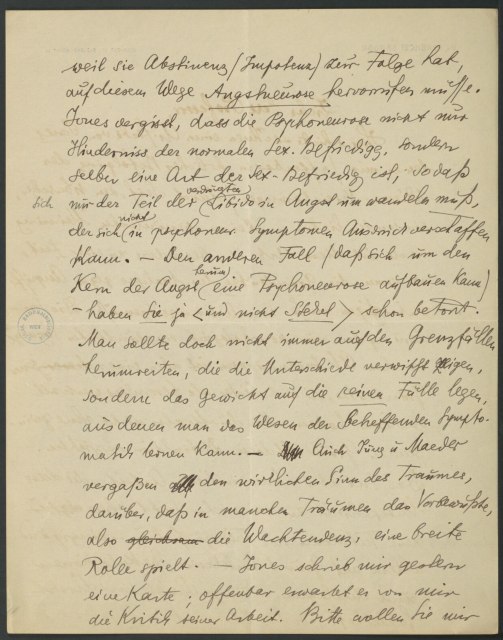 weil sie Abstinenz (Impotenz) zur Folge hat,
auf diesem Wege Angstneurose hervorrufen müsse.
Jones vergisst, dass die Psychoneurose nicht nur
Hinderniss der normalen Sex. Befriedigg, sondern
selber eine Art der Sex-Befriedigg ist, sodaß
verdrängten
sich nur der Teil der Libido in Angst umwandeln muß,
nicht
der sich in psychoneur. Symptomen Ausdruck verschaffen
kann. – Den anderen Fall (daß sich um den
herum
Kern der Angst eine Psychoneurose aufbauen kann)
– haben Sie ja <und nicht Stekel> schon betont.
Man sollte doch nicht immer auf den Grenzfällen
herumreiten, die die Unterschiede verwischt zeigen,
sondern das Gewicht auf die reinen Fälle legen,
aus denen man das Wesen der betreffenden Sympto-
matik lernen kann. – Auch Jung u Maeder
vergaßen den wirklichen Sinn des Traumes,
darüber, daß in manchen Träumen das Vorbewußte,
also gleichsam die Wachtendenz, eine breite
Rolle spielt. – Jones schrieb mir gestern
eine Karte; offenbar erwartet er von mir
die Kritik seiner Arbeit. Bitte wollen Sie mir